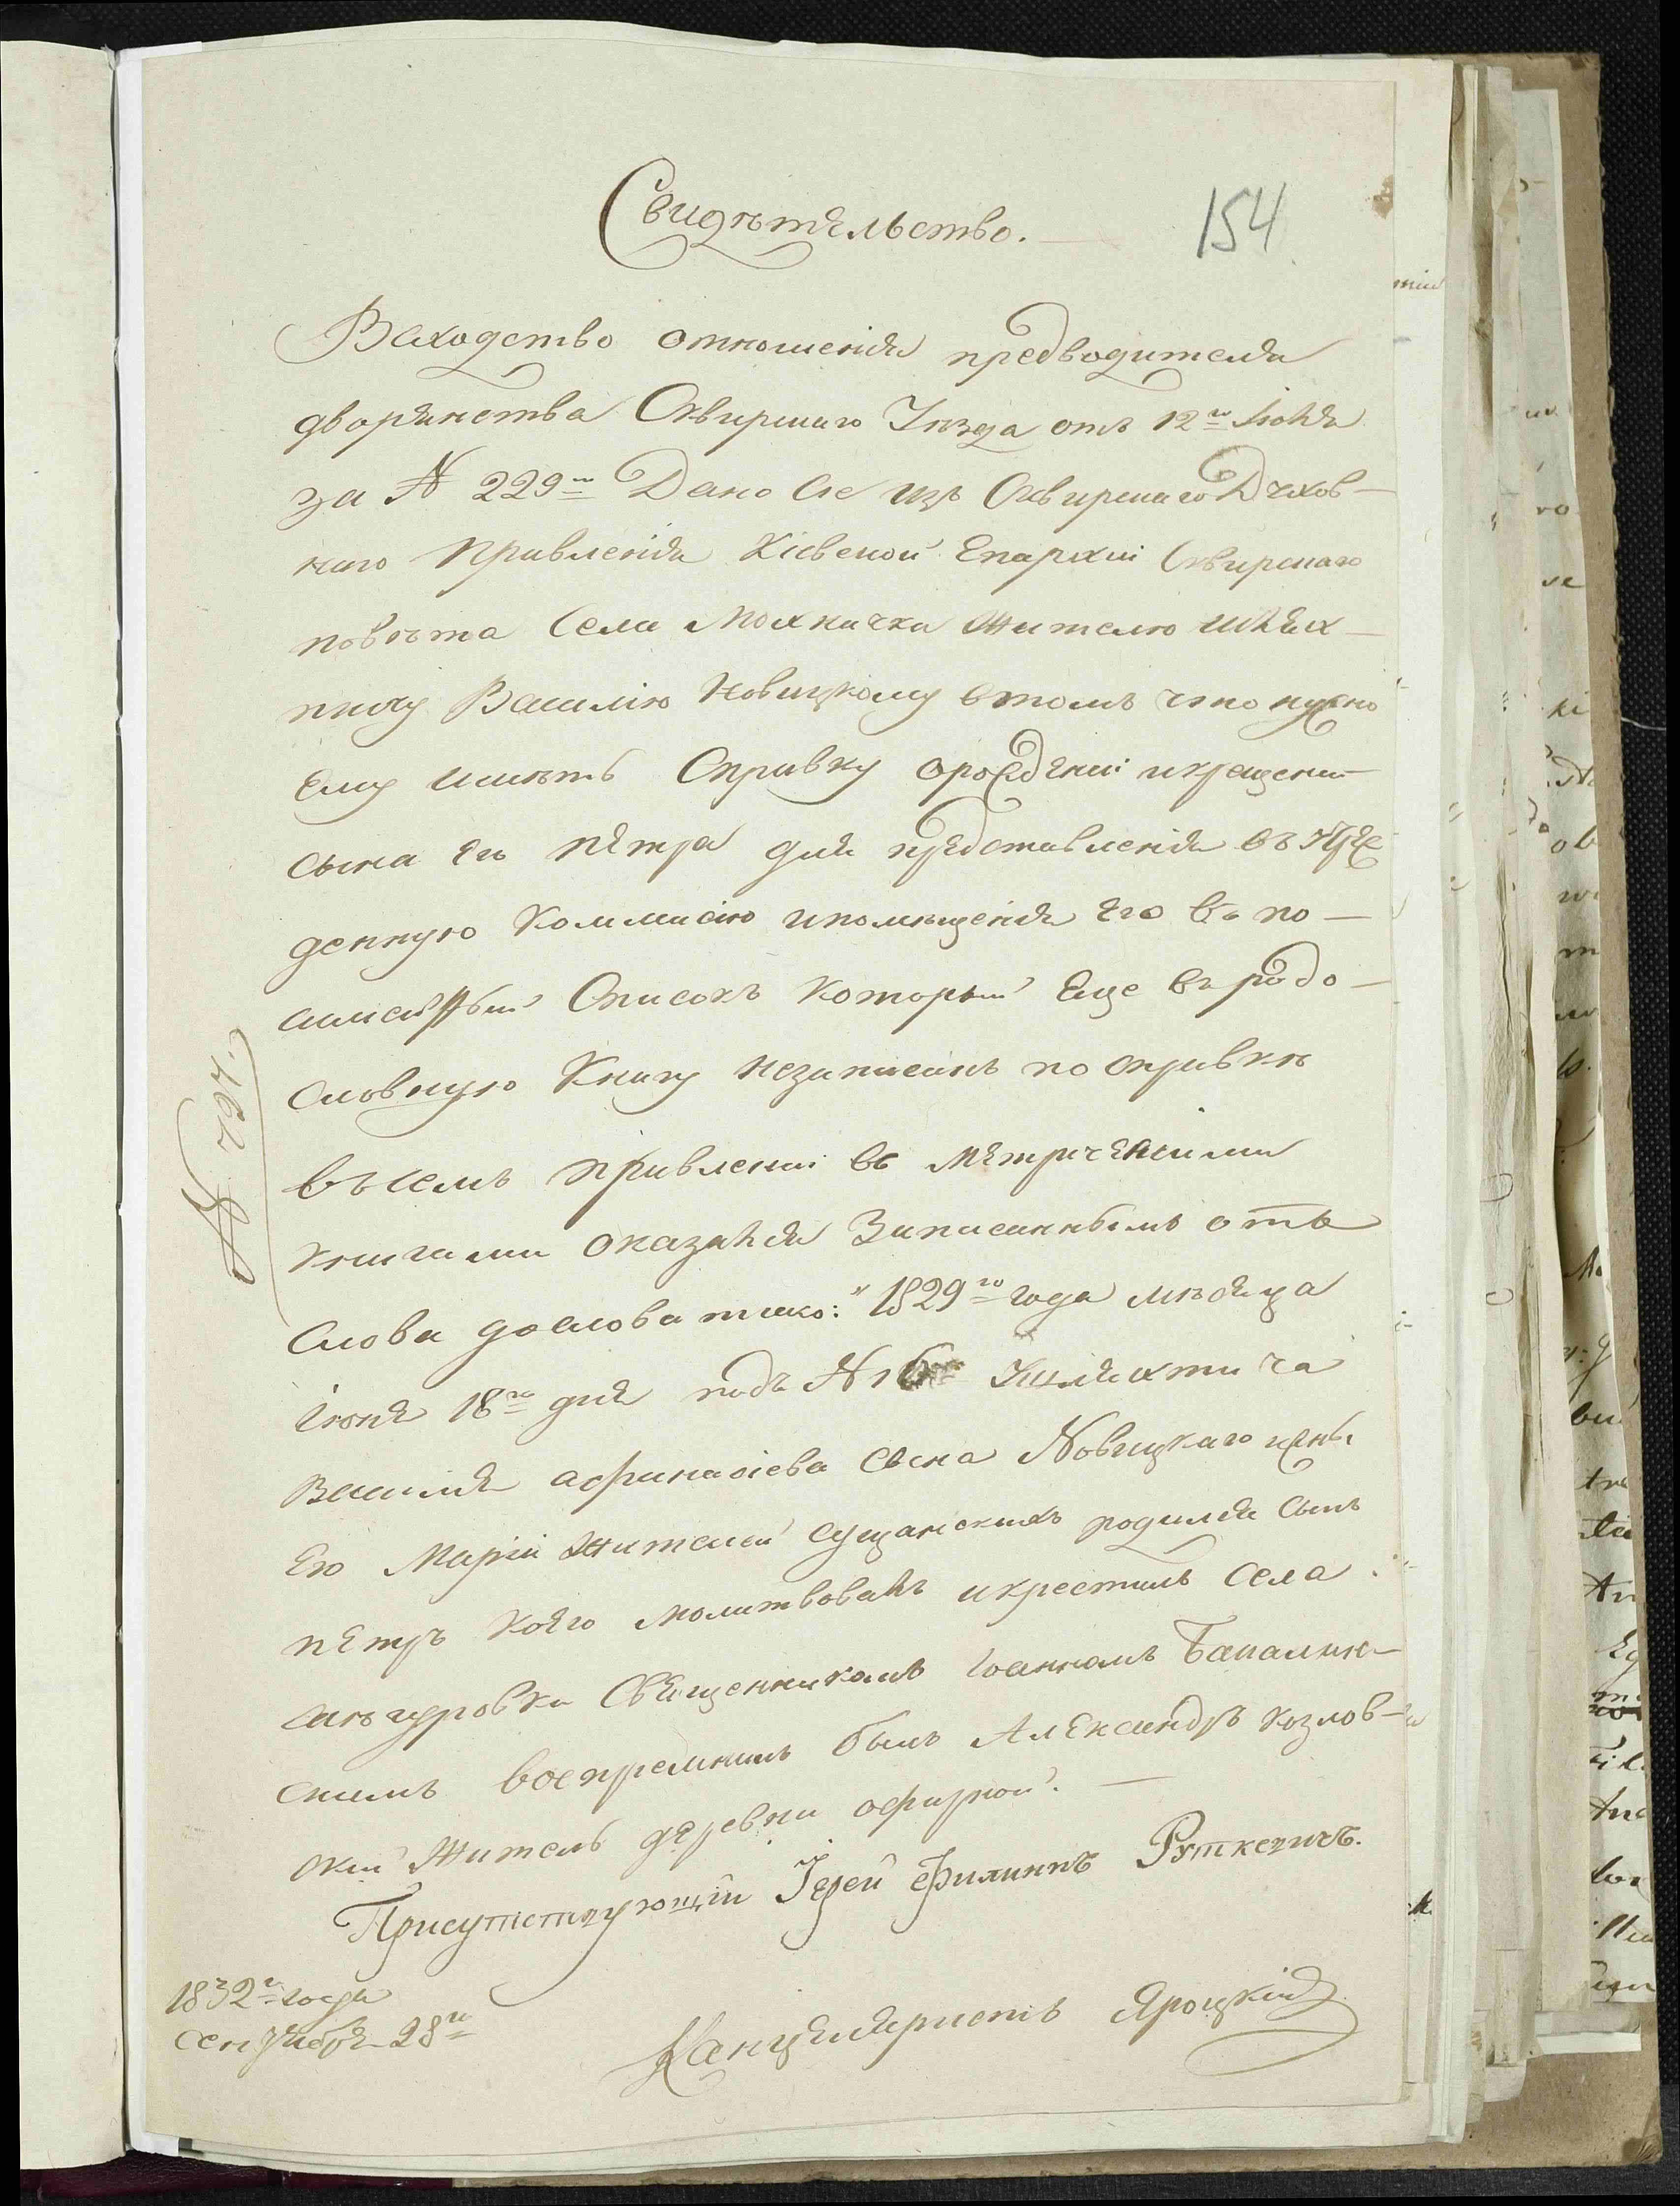 Свидѣтельство.
154
Васходство отношенія предводителя
дворянства Сквирскаго Уѣзда отъ 12го Іюня
за № 229м Дано сіе изъ Сквирскаго Духов-
наго Правленія Кіевской Епархіи Сквирскаго
повѣта Села Мохначки Жителю шлях-
тичу Василію Новицкому втомъ что нужно
Ему имѣть Справку орожденіи икрещеніи
сына его Петра для представленія въ
денную Коммисію ипомѣщенія его въ по-
Списокъ Который Еще въ родо-
словную Книгу незаписанъ по справкѣ
въ семъ Правленіи въ Метрическими
книгами оказался Записаннымъ отъ
слова дослова тако: "1829го года мѣсяца
Іюня 18го дня подъ № Ушляхтича
Василія Афинасіева сына Новицкаго жены
Его Маріи Жителей Сущанскихъ родился сынъ
Петръ коего молитвовалъ икрестилъ Села
Священникомъ Іоанномъ
скимъ воспремникъ былъ Александръ Козлов-
скій Житель деревни
Присутствующій Іерей Филиппъ Руткевичъ.
1832го года
Сентября 28го
Канцеляристъ Яроцкій
№ 794.